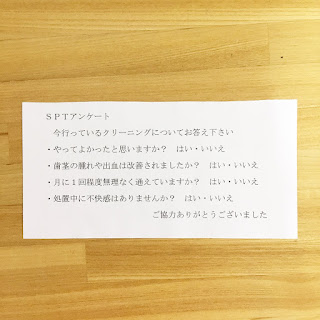 ＳＰＴアンケート
今行っているクリーニングについてお答え下さい
・やってよかったと思いますか？　はい・いいえ
・歯茎の腫れや出血は改善されましたか？　はい・いいえ
・月に１回程度無理なく通えていますか？　はい・いいえ
・処置中に不快感はありませんか？　はい・いいえ
ご協力ありがとうございました